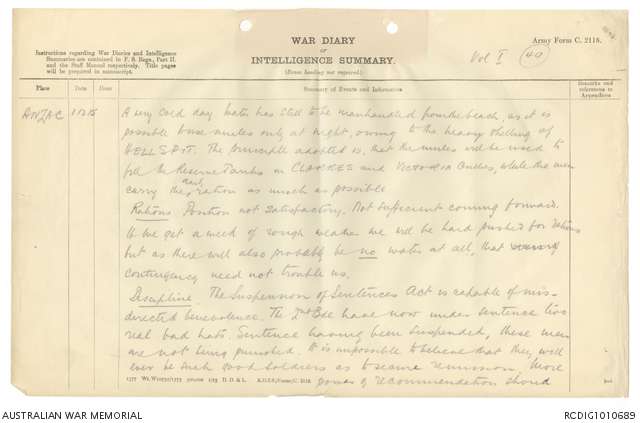 WAR DIARY
or
INTELLIGENCE SUMMARY.
(Erase heading not required.)
Army Form C. 2118.
Vol I 40
Instructions regarding War Diaries and Intelligence
Summaries are contained in F. S. Regs., Part II.
and the Staff Manual respectively. Title pages
will be prepared in manuscript.
Place Date Hour Summary of Events and Information Remarks and
references to
Appendices
ANZAC 1.12.15 A very cold day. Water has still to be manhandled from the beach, as it is
possible to use mules only at night, owing to the heavy shelling of
HELL SPIT. The principle adopted is, that the mules will be used to
fill the Reserve Tanks in CLARKES and VICTORIA Gullies, while the men
carry the daily ration as much as possible
Rations Position not satisfactory. Not sufficient coming forward.
If we get a week of rough weather we will be hard pushed for rations
but as there will also probably be no water at all, that
contingency need not trouble us.
Discipline. The Suspension of Sentences Act is capable of mis-
directed benevolence. The 2nd Bde have now under sentence two
real bad hats. Sentence having been suspended, these men
are not being punished. It is impossible to believe that they will
ever be such good soldiers as to secure remission. More
powers of recommendation should
D. D. & L. A.D.S.S./Forms/C. 2118
AUSTRALIAN WAR MEMORIAL
RCDIG1010689